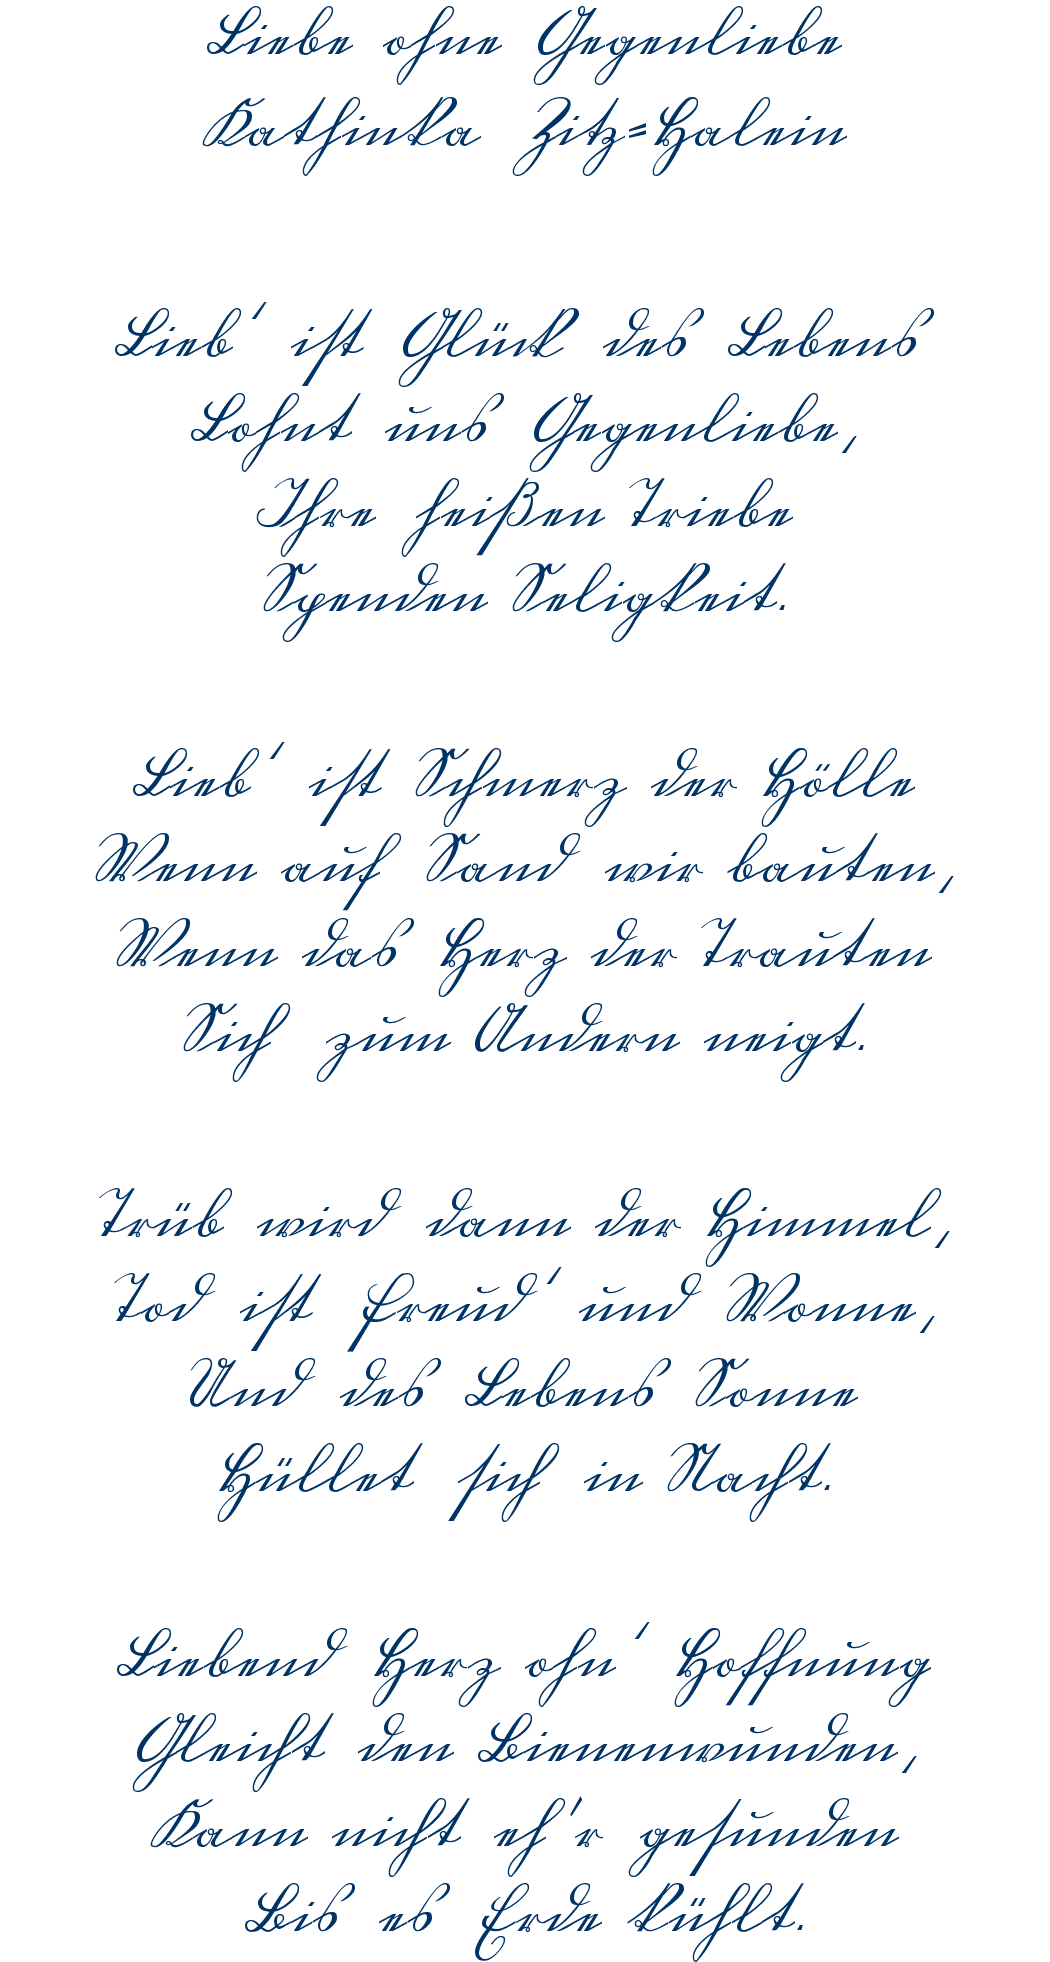 Liebe ohne Gegenliebe
Kathinka Zitz=Halein
Lieb' ist Glück des Lebens
Lohnt uns Gegenliebe,
Ihre heißen Triebe
Spenden Seligkeit.
Lieb' ist Schmerz der Hölle
Wenn auf Sand wir bauten,
Wenn das Herz der Trauten
Sich zum Andern neigt.
Trüb wird dann der Himmel,
Tod ist Freud' und Wonne,
Und des Lebens Sonne
Hüllet sich in Nacht.
Liebend Herz ohn' Hoffnung
Gleicht den Bienenwunden,
Kann nicht eh'r gesunden
Bis es Erde kühlt.